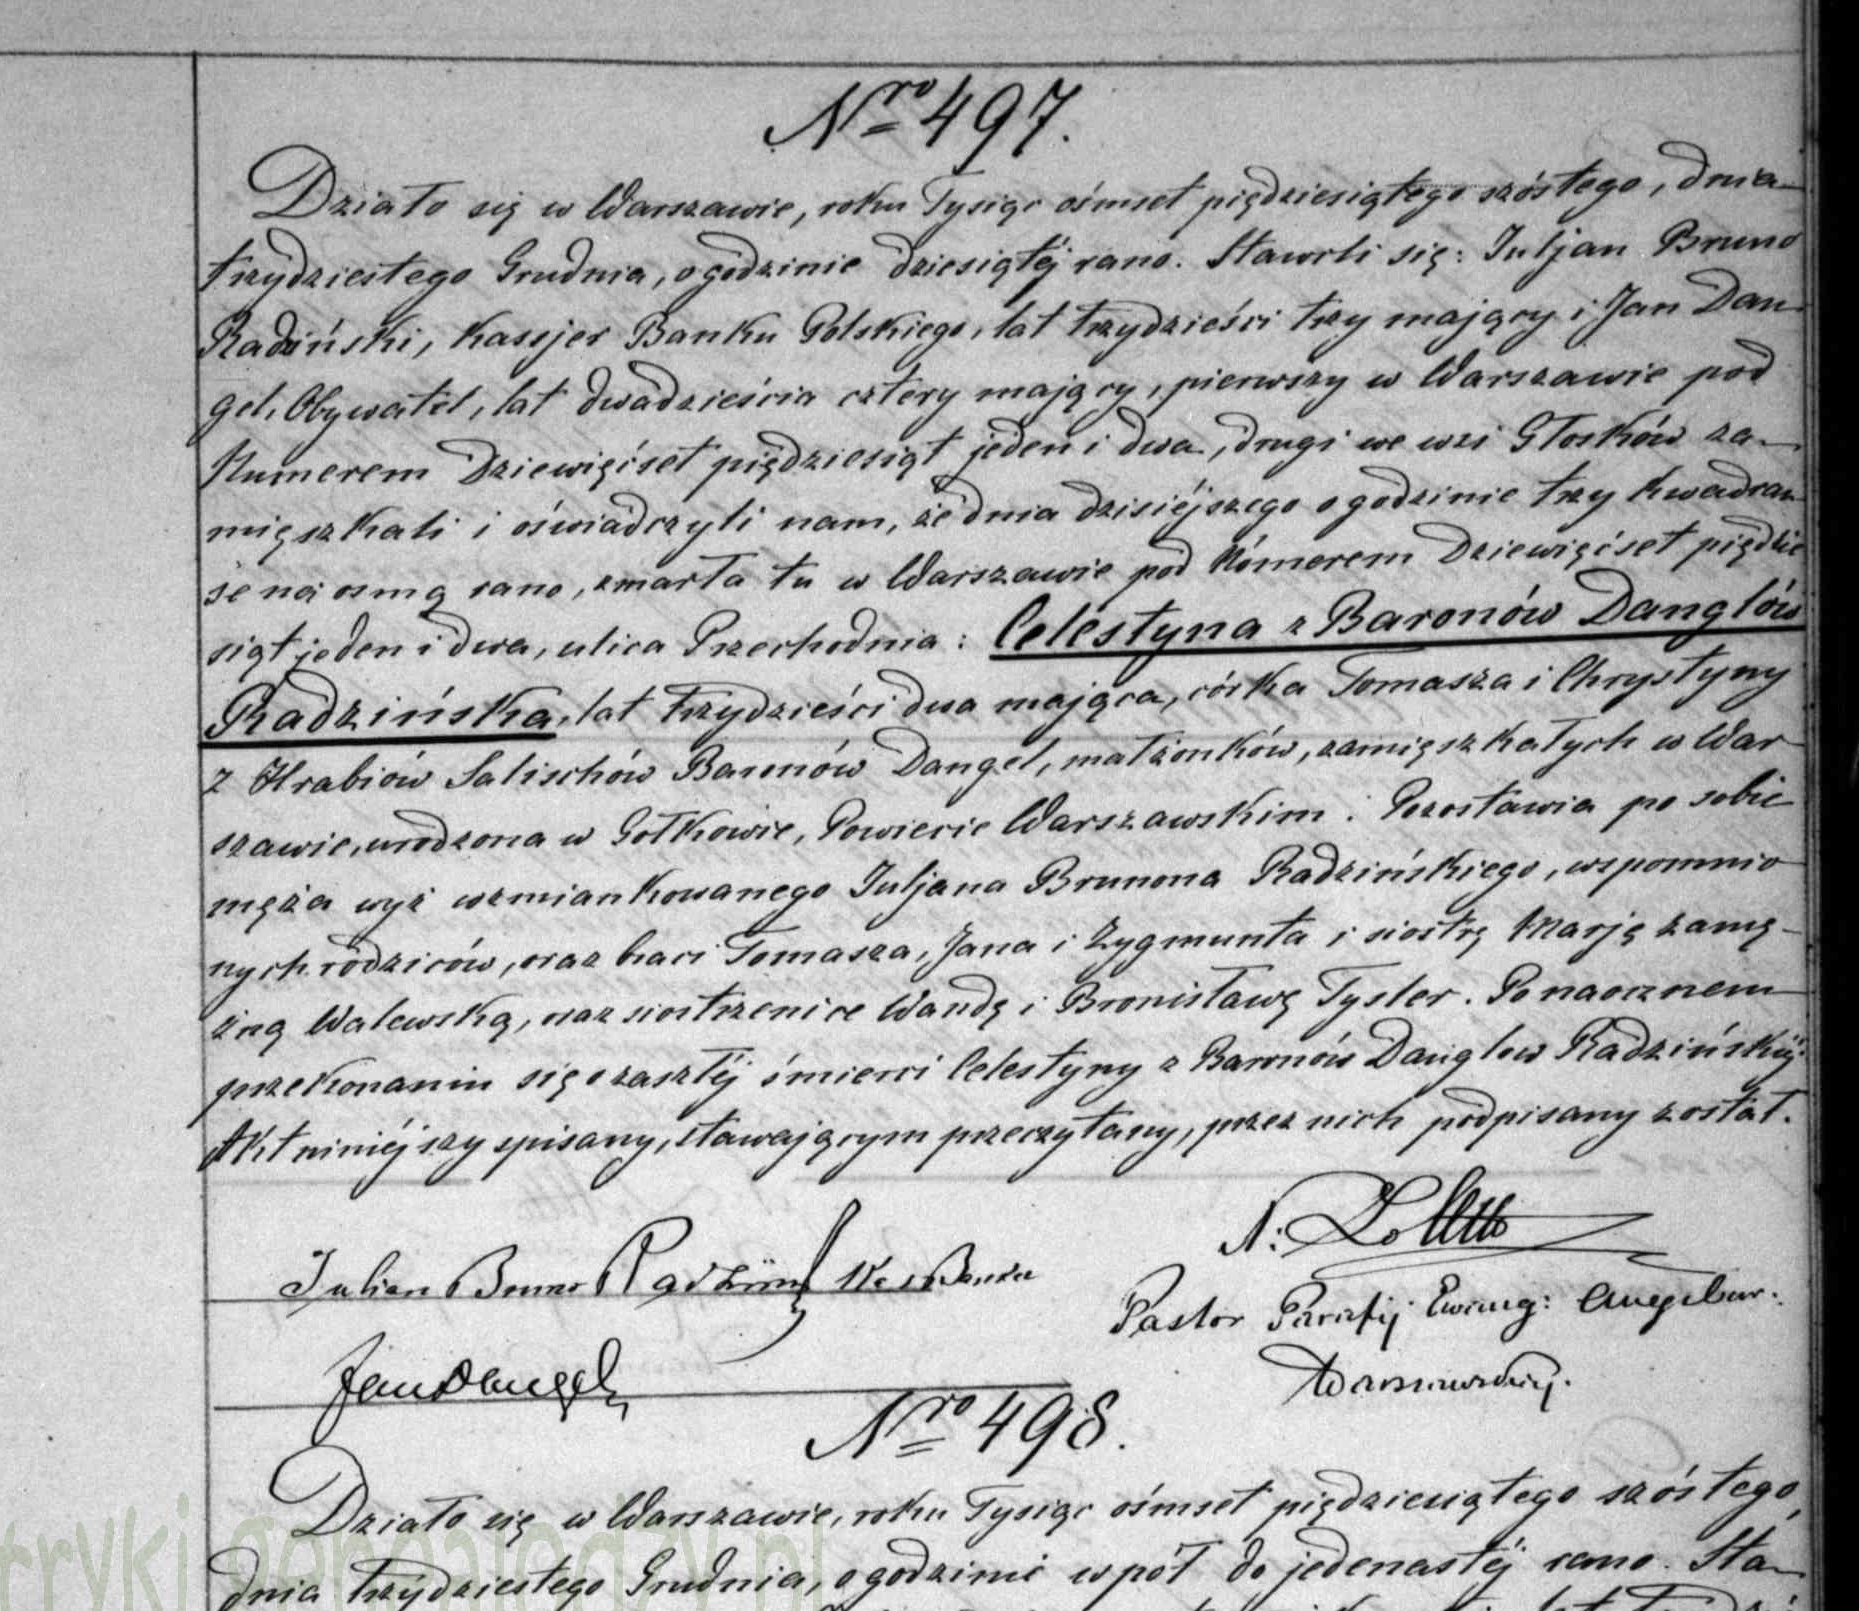 Nro 497.
Działo się w Warszawie, roku Tysiąc ośmset pięćdziesiątego szóstego, dnia
trzydziestego Grudnia, o godzinie dziesiątéj rano. Stawili się: Juljan Bruno
Radziński, Kassjer Banku Polskiego, lat trzydzieści trzy mający i Jan Dan-
gel, Obywatel, lat dwadzieścia cztery mający, pierwszy w Warszawie pod
Numerem Dziewięćset pięćdziesiąt jeden i dwa, drugi we wsi Głosków za-
mięszkali i oświadczyli nam, że dnia dzisiéjszego o godzinie trzy kwadran-
se na osmą rano, zmarła tu w Warszawie pod Nómerem Dziewięćset pięćdzie
siąt jeden i dwa, ulica Przechodnia: Celestyna z Baronów Danglów
Radzińska, lat trzydzieści dwa mająca, córka Tomasza i Chrystyny
z Hrabiów Salischów Baronów Dangel, małżonków, zamięszkałych w War-
szawie, urodzona w Gołkowie, Powiecie Warszawskim. Pozostawia po sobie
męża wyż wzmiankowanego Juljana Brunona Radzińskiego, wspomnio-
nych rodziców, oraz braci Tomasza, Jana i Zygmunta i siostrę Marję zamę-
żną Walewską, oraz siostrzenice Wandę i Bronisławę Tysler. Po naocznem
przekonaniu się o zaszłéj śmierci Celestyny z Baronów Danglow Radzińskiéj
Akt niniéjszy spisany, stawającym przeczytany, przez nich podpisany został.
Julian Bruno Radziński Kas Banku
N:
Pastor Parafij Ewang: Augsbur:
Warszawskiej.
Jan Dangel
Nro 498.
Działo się w Warszawie, roku Tysiąc ośmset pięćdziesiątego szóstego,
dnia trzydziestego Grudnia, o godzinie wpół do jedenastéj rano. Sta-